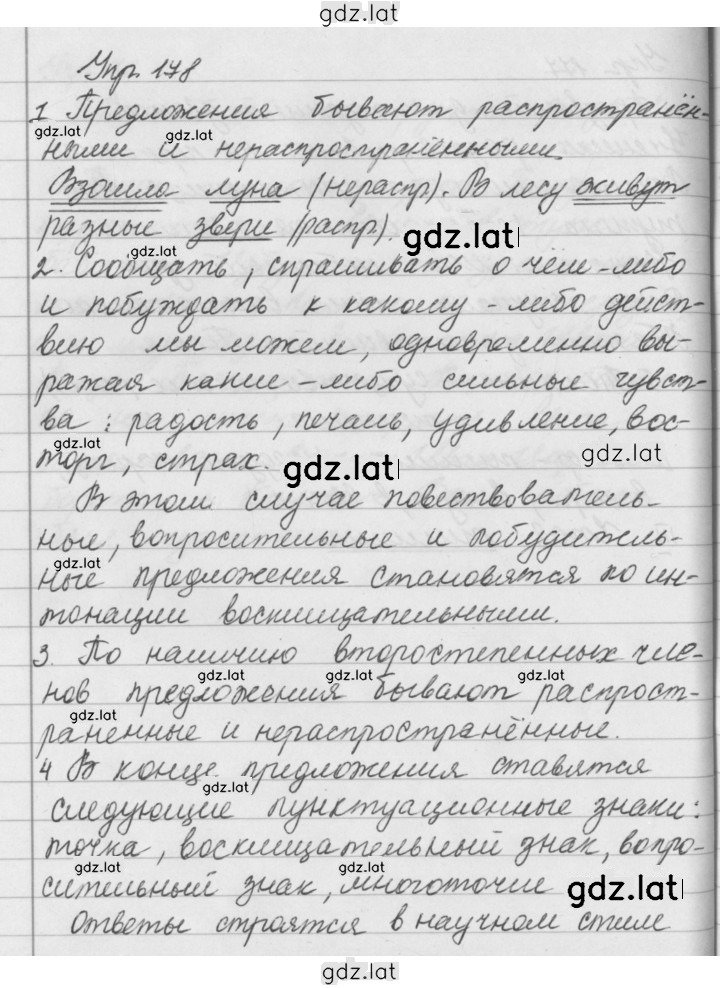 gdz.lat
Упр. 178
1 Предложения бывают распространён-
gdz.lat gdz.lat
ными и нераспространёнными.
Взошла луна (нераспр). В лесу живут
разные звери (распр).
gdz.lat
2. Сообщать, спрашивать о чём-либо
gdz.lat
и побуждать к какому-либо дейст-
вию мы можем, одновременно вы-
ражая какие-либо сильные чувст-
ва: радость, печаль, удивление, вос-
gdz.lat gdz.lat
торг, страх.
gdz.lat
В этом случае повествователь-
ные, вопросительные и побудитель-
gdz.lat
ные предложения становятся по ин-
тонации восклицательными.
3. По наличию второстепенных чле-
gdz.lat gdz.lat gdz.lat
нов предложения бывают распрост-
gdz.lat
раненные и нераспространённые.
4 В конце предложения ставятся
gdz.lat
следующие пунктуационные знаки:
точка, восклицательный знак, вопро-
gdz.lat gdz.lat
сительный знак, многоточие
gdz.lat
Ответы строятся в научном стиле
gdz.lat